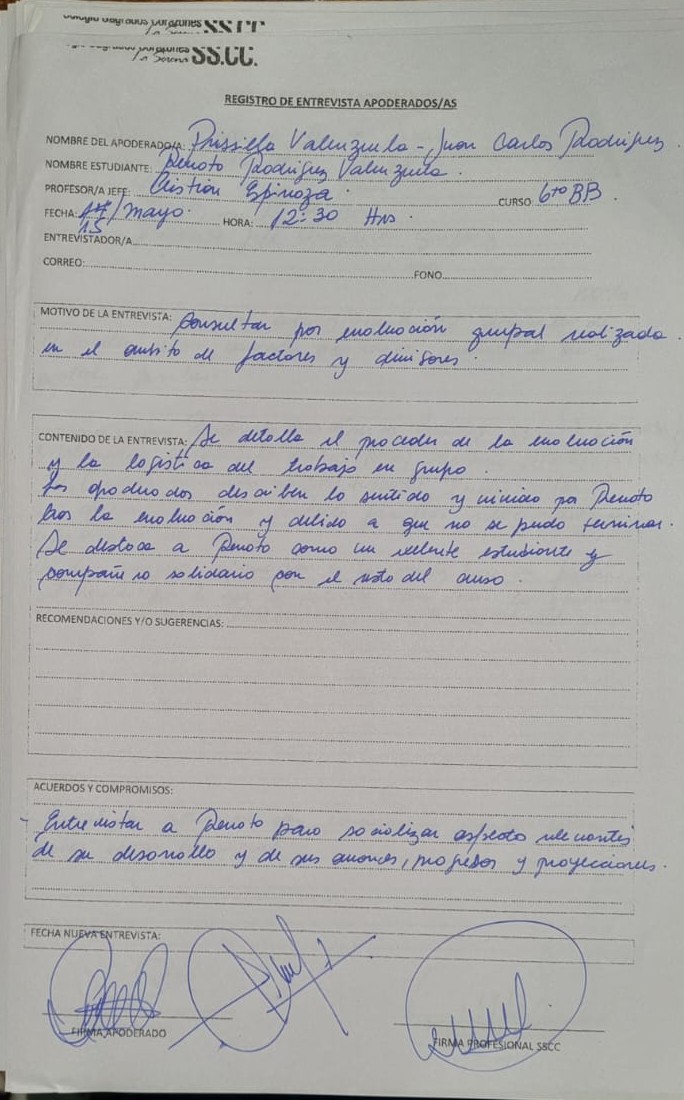 Colegio Sagrados Corazones SS.CC.
La Serena
Sagrados Corazones SS.CC.
La Serena
REGISTRO DE ENTREVISTA APODERADOS/AS
NOMBRE DEL APODERADO/A: Prissilla Valenzuela - Juan Carlos Rodríguez.
NOMBRE ESTUDIANTE: Renato Rodríguez Valenzuela.
PROFESOR/A JEFE: Cristian Espinoza. CURSO 6to BB.
FECHA: /mayo. HORA: 12:30 Hrs.
15
ENTREVISTADOR/A
CORREO: FONO
MOTIVO DE LA ENTREVISTA: Consultar por evaluación grupal realizada.
en el ámbito de factores y divisores.
CONTENIDO DE LA ENTREVISTA: Se detalla el proceder de la evaluación
y la logística del trabajo en grupo.
Los apoderados describen lo sentido y vivido por Renato
tras la evaluación y debido a que no se pudo terminar.
Se destaca a Renato como un excelente estudiante y
compañero solidario con el resto del curso.
RECOMENDACIONES Y/O SUGERENCIAS:
ACUERDOS Y COMPROMISOS:
- Entrevistar a Renato para socializar aspecto relevantes
de su desarrollo y de sus avances, progresos y proyecciones.
FECHA NUEVA ENTREVISTA:
FIRMA APODERADO FIRMA PROFESIONAL SSCC